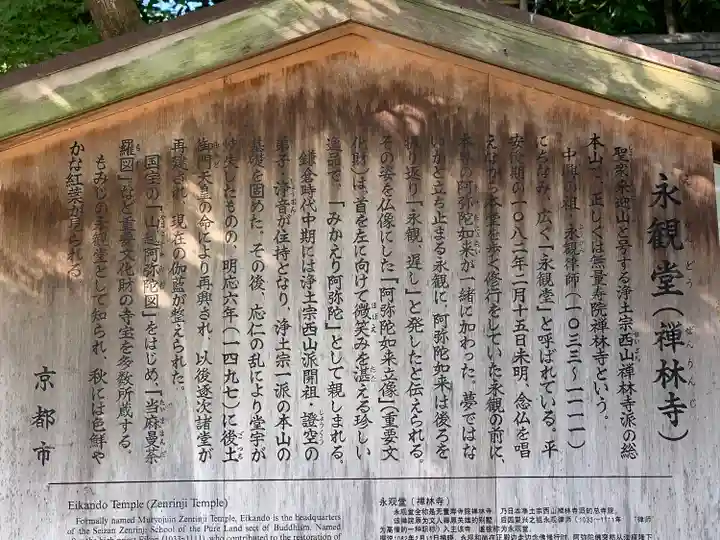 永観堂（禅林寺）
聖衆来迎山と号する浄土宗西山禅林寺派の総
本山で、正しくは無量寿院禅林寺という。
中興の祖・永観律師（一〇三三～一一一一）
にちなみ、広く「永観堂」と呼ばれている。平
安後期の一〇八二年二月十五日未明、念仏を唱
えながら本堂を歩く修行をしていた永観の前に、
本尊の阿弥陀如来が一緒に加わった。夢ではな
いかと立ち止まる永観に、阿弥陀如来は後ろを
振り返り「永観、遅し」と発したと伝えられる。
その姿を仏像にした「阿弥陀如来立像」（重要文
化財）は、首を左に向けて微笑みを湛える珍しい
逸品で、「みかえり阿弥陀」として親しまれる。
鎌倉時代中期には浄土宗西山派開祖・證空の
弟子・浄音が住持となり、浄土宗一派の本山の
基礎を固めた。その後、応仁の乱により堂宇が
焼失したものの、明応六年（一四九七）に後土
御門天皇の命により再興され、以後逐次諸堂が
再建され、現在の伽藍が整えられた。
国宝の「山越阿弥陀図」をはじめ、「当麻曼荼
羅図」など重要文化財の寺宝を多数所蔵する。
もみじの永観堂として知られ、秋には色鮮や
かな紅葉が見られる。
京都市
Eikando Temple (Zenrinji Temple)
Formally named Muryojuin Zenrinji Temple, Eikando is the headquarters
of the Seizan Zenrinji School of the Pure Land sect of Buddhism. Named
永观堂（禅林寺）
永观堂全称是无量寿寺院禅林寺，乃日本净土宗西山禅林寺派的总寺院。